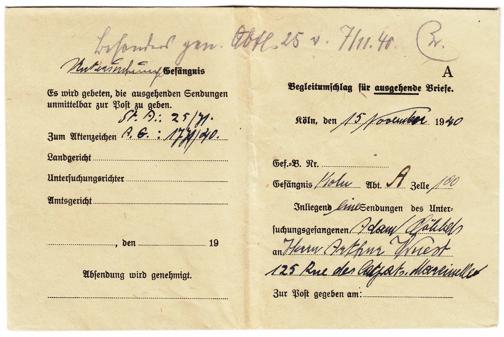 Besonders gen. Abtl. 25 v. 7/11.40.
Untersuchungs Gefängnis
Es wird gebeten, die ausgehenden Sendungen
unmittelbar zur Post zu geben.
25/71
Zum Aktenzeichen
Landgericht
Untersuchungsrichter
Amtsgericht
, den 19
Absendung wird genehmigt.
A
Begleitumschlag für ausgehende Briefe.
Köln, den 15 November 1940
Gef.-B. Nr.
Gefängnis Köln Abt. A Zelle 100
Inliegend eine Sendungen des Unter-
suchungsgefangenen Adam
an Herrn Arthur
125 Rue des
Zur Post gegeben am: